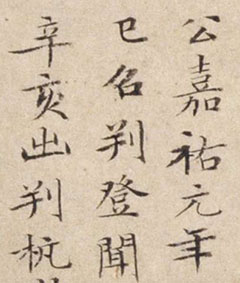 公嘉祐元年
已召判登聞
辛亥出判杭